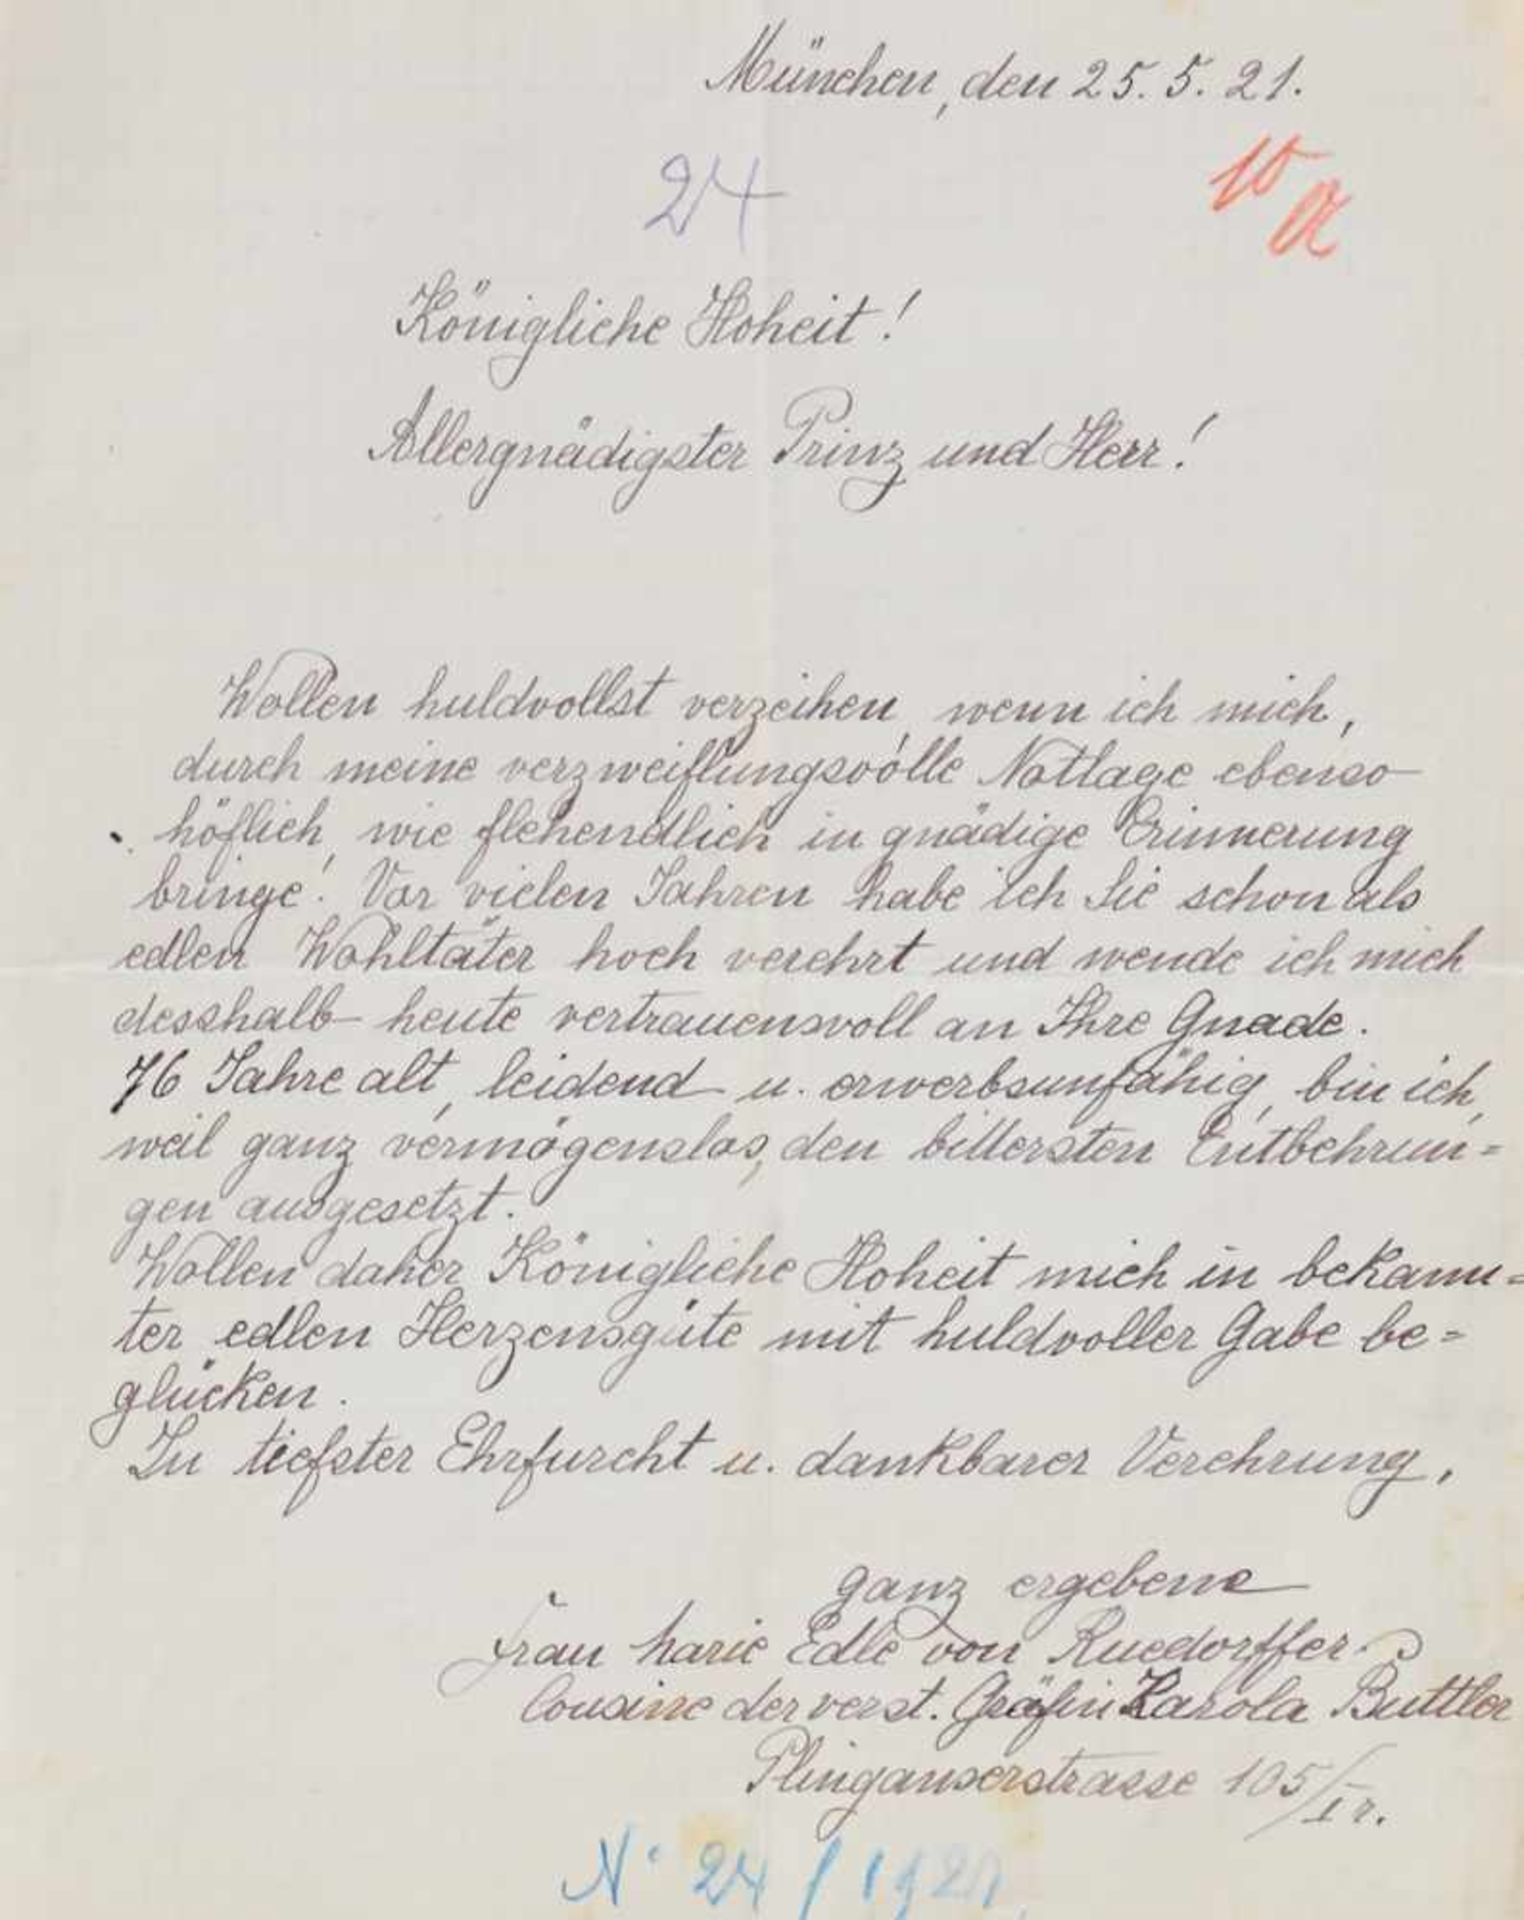 München, den 25. 5. 21.
24
10
a
Königliche Hoheit!
Allergnädigster Prinz und Herr!
Wollen huldvollst verzeihen, wenn ich mich,
durch meine verzweiflungsvolle Notlage ebenso
höflich, wie flehendlich in gnädige Erinnerung
bringe! Vor vielen Jahren habe ich Sie schon als
edlen Wohltäter hoch verehrt und wende ich mich
desshalb heute vertrauensvoll an Ihre Gnade.
76 Jahre alt, leidend u. erwerbsunfähig, bin ich,
weil ganz vermögenslos, den bittersten Entbehrun=
gen ausgesetzt.
Wollen daher Königliche Hoheit mich in bekann=
ter edlen Herzensgüte mit huldvoller Gabe be=
glücken.
In tiefster Ehrfurcht u. dankbarer Verehrung,
ganz ergebene
Frau Marie Edle von Ruedorffer.
Cousine der verst. Gräfin Karola Buttler
Plinganserstrasse 105/I r.
N. 24 / 1921